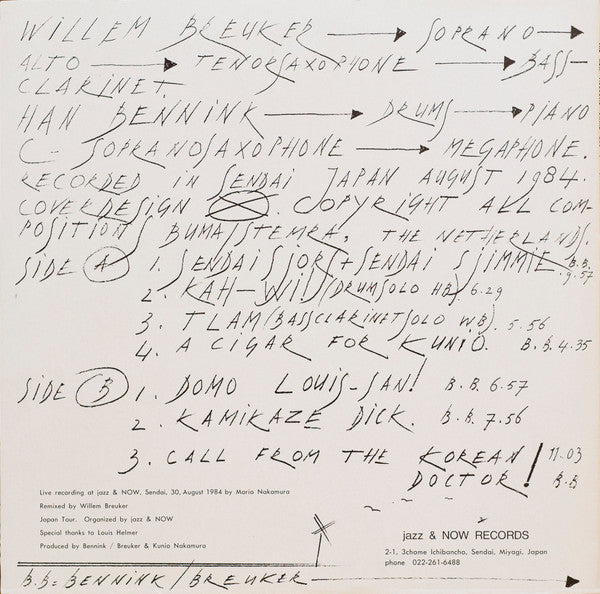 WILLEM BREUKER → SOPRANO →
ALTO → TENORSAXOPHONE → BASS-
CLARINET.
HAN BENNINK → DRUMS → PIANO
C- SOPRANOSAXOPHONE → MEGAPHONE.
RECORDED IN SENDAI JAPAN AUGUST 1984.
COVERDESIGN . COPYRIGHT ALL COM-
POSITIONS BUMA/STEMRA, THE NETHERLANDS.
SIDE A 1. SENDAI SJORS + SENDAI SJIMMIE B.B. 9.57
2. KAH-WIJ! (DRUMSOLO HB) 6.29
3. TLAM (BASSCLARINETSOLO W.B). 5.56
4. A CIGAR FOR KUNIO. B.B. 4.35
SIDE B 1. DOMO LOUIS-SAN! B.B. 6.57
2. KAMIKAZE DICK. B.B. 7.56
3. CALL FROM THE KOREAN 11.03
DOCTOR! B.B
Live recording at jazz & NOW, Sendai, 30, August 1984 by Mario Nakamura
Remixed by Willem Breuker
Japan Tour. Organized by jazz & NOW
Special thanks to Louis Helmer
Produced by Bennink / Breuker & Kunio Nakamura
jazz & NOW RECORDS
2-1, 3chome Ichibancho, Sendai, Miyagi, Japan
phone 022-261-6488
B.B = BENNINK / BREUKER →